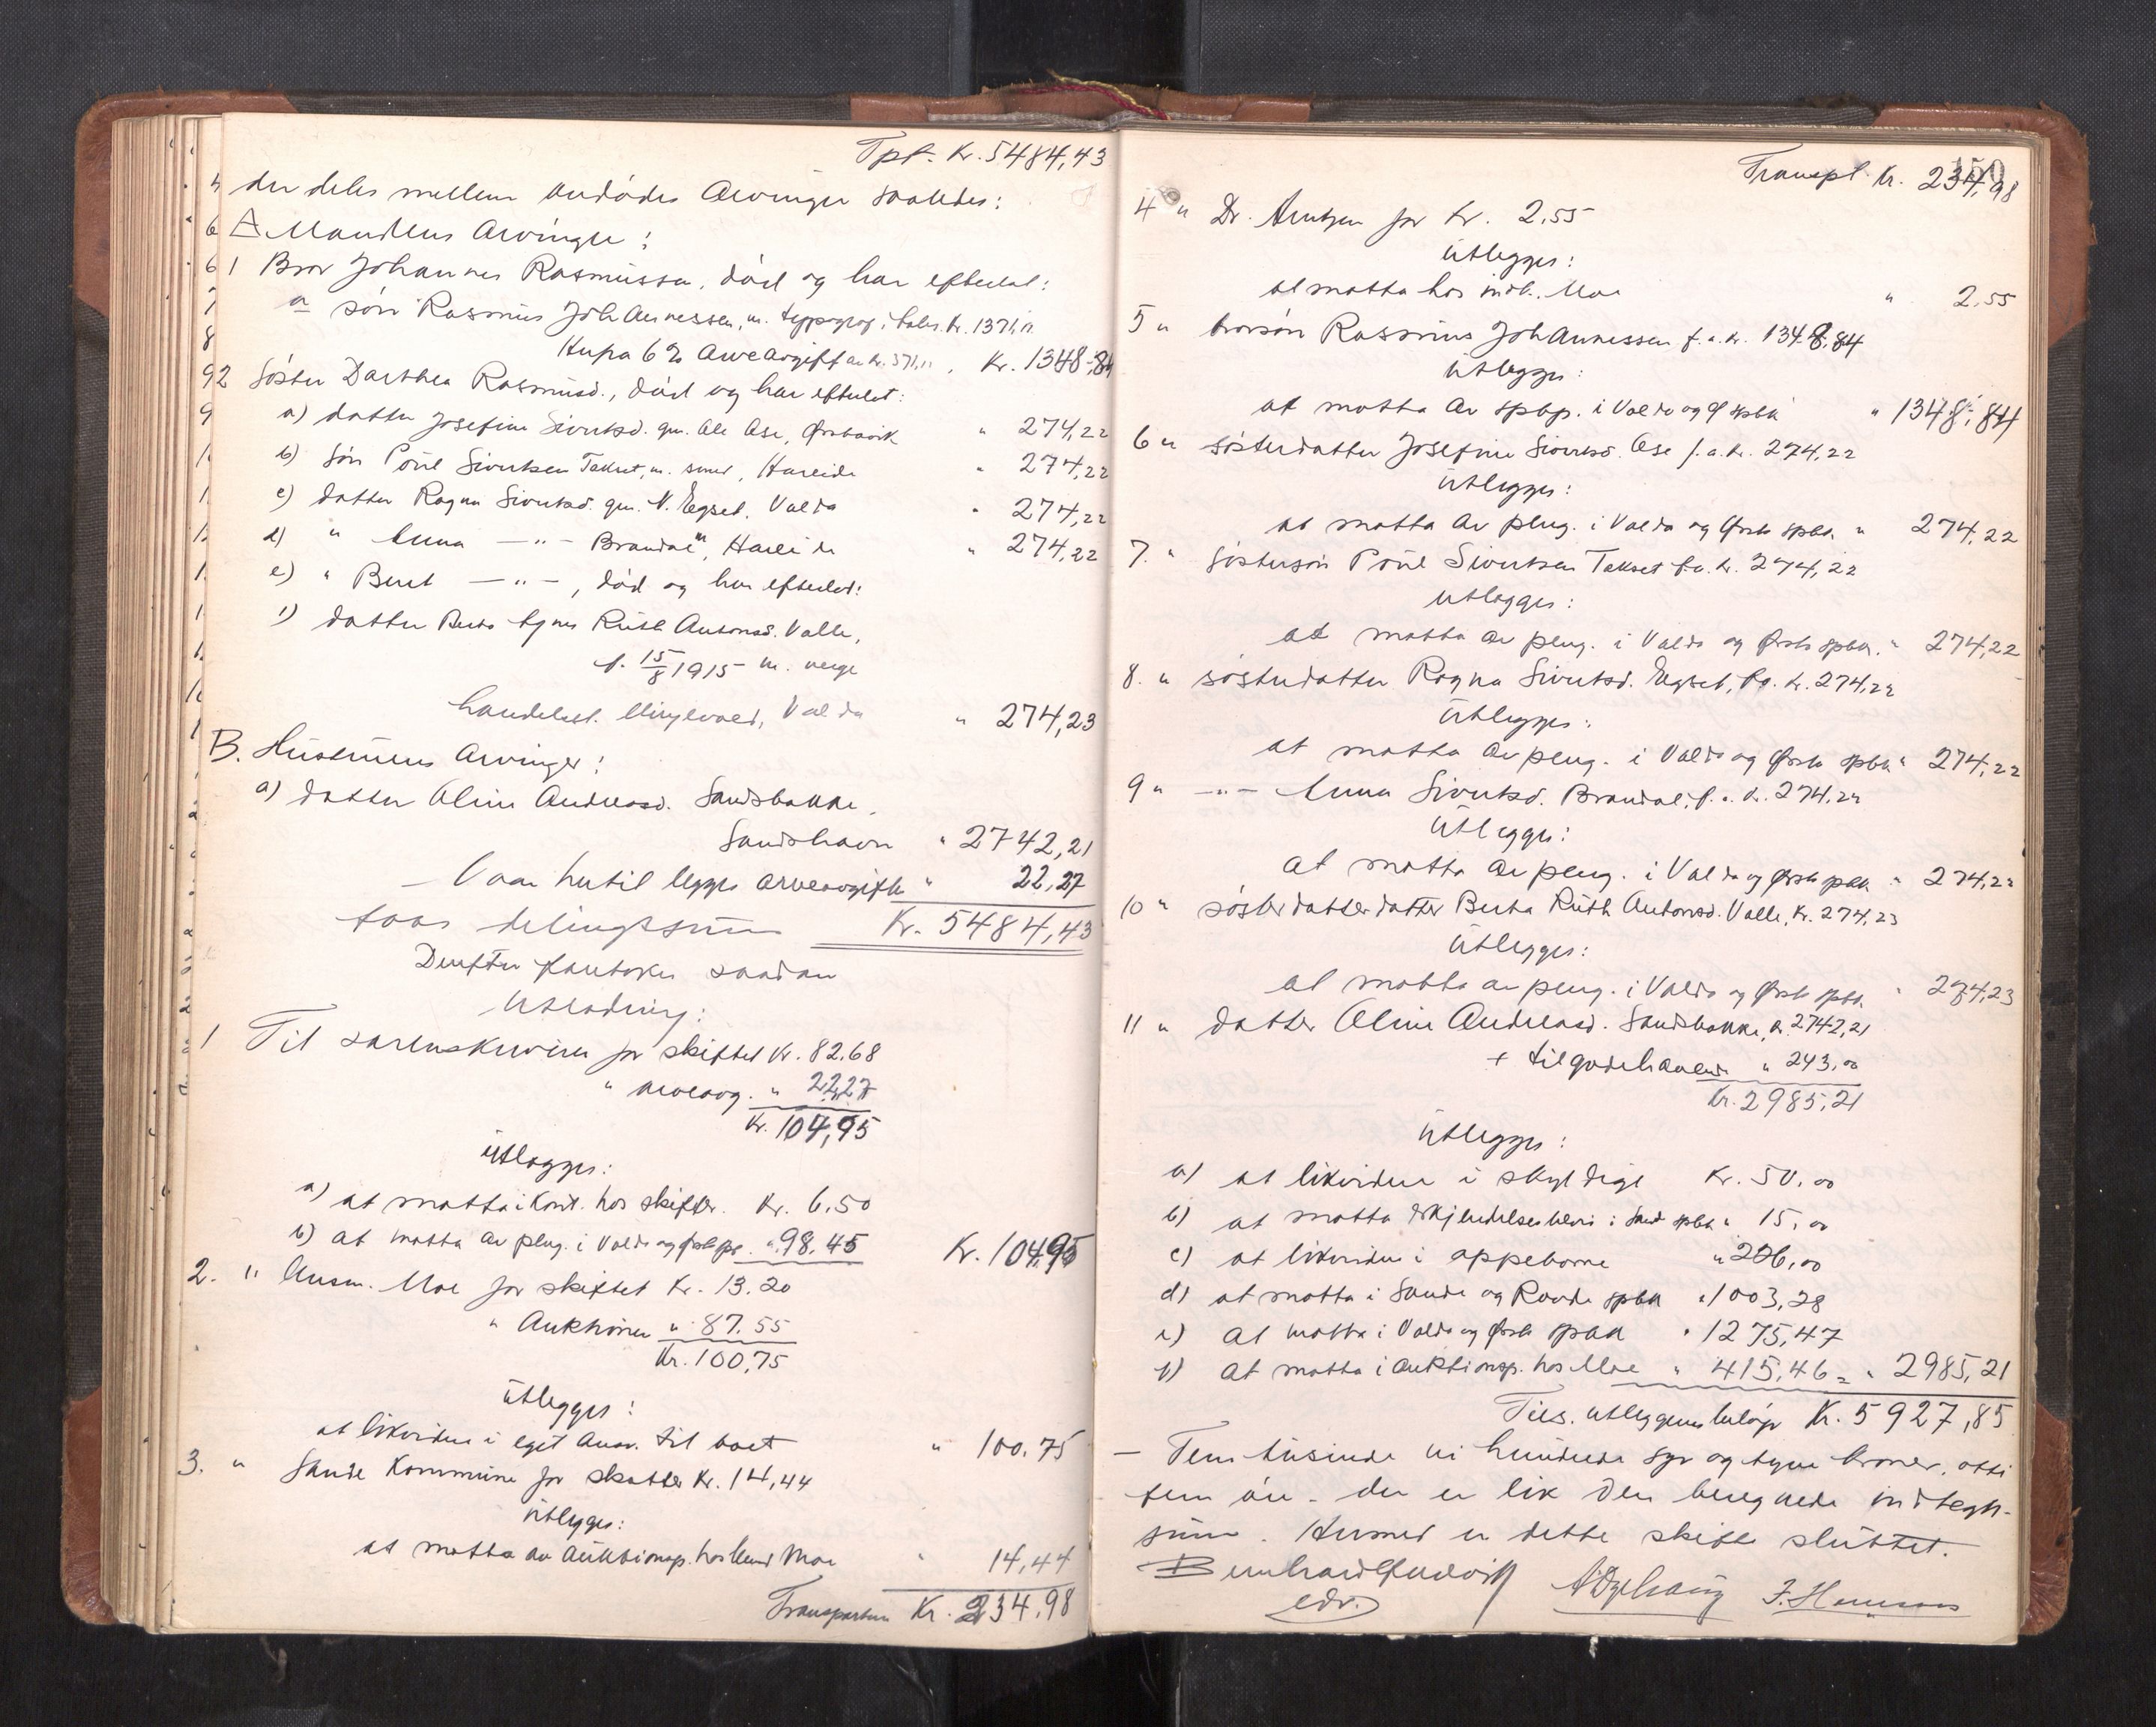 Tpt. Kr. 5484,43
der deles mellem avdødes Arvinger saaledes:
A. Mandens Arvinger:
1 Bror Johannes Rasmussen, død og har efterlat:
a søn Rasmus Johannessen, m. typograf, Kr. 1371,11
Herfra 6% Arveavgift av Kr. 371,11, Kr. 1348,84
2 Søster Dorthea Rasmusd., død og har efterlat:
a) datter Josefine Sivertsd. gm. Ole Ose, Ørstavik " 274,22
b) søn Poul Sivertsen Takset, m. smed, Hareide " 274,22
c) datter Ragna Sivertsd. gm. N. Egset, Volda " 274,22
d) " Anna —"— Brandal, Hareide " 274,22
e) " Berit —"—, død og har efterlat:
1) datter Berta Agnes Ruth Antonsd. Valle,
f. 15/8 1915 m. verge
handelsst. Vinjevold, Volda " 274,23
B. Hustruens Arvinger:
a) datter Oline Andreasd. Sandsbakke,
Sandshavn " 2742,21
— Naar hertil legges arveavgiften " 22,27
faaes delingssum Kr. 5484,43
Derefter foretokes saadan
Utlodning:
1 Til sorenskriveren for skiftet Kr. 82.68
" arveavg. " 22,27
Kr. 104,95
Utlegges:
a) at motta i kont. hos skiftef. Kr. 6.50
b) at motta av peng. i Volda og Ørsta spb. " 98.45 Kr. 104,95
2. " lensm. Moe for skiftet Kr. 13.20
" Auktionen " 87.55
Kr. 100,75
Utlegges:
at likvidere i eget ansv. til boet " 100.75
3. " Sande Kommune for skatter Kr. 14,44
Utlegges:
at motta av Auktionsp. hos lensm. Moe " 14,44
Transporteres Kr. 234.98
150
Transpt. Kr. 234,98
4 " Dr. Arntzen for Kr. 2.55
Utlegges:
at motta hos indk. Moe " 2.55
5 " brorsøn Rasmus Johannessen f. a. Kr. 1348,84
Utlegges:
at motta av spbp. i Volda og Ø spbk " 1348,84
6 " søsterdatter Josefine Sivertsd. Ose f. a. Kr. 274,22
Utlegges:
at motta av peng. i Volda og Ørsta spbk " 274,22
7. " søstersøn Poul Sivertsen Takset f. a. Kr. 274,22
Utlegges:
at motta av peng. i Volda og Ørsta spbk. " 274,22
8. " søsterdatter Ragna Sivertsd. Egset, f. a. Kr. 274,22
Utlegges:
at motta av peng. i Volda og Ørsta spbk " 274,22
9 " —"— Anna Sivertsd. Brandal, f. a. Kr. 274,22
Utlegges:
at motta av peng. i Volda og Ørsta spbk " 274,22
10 " søsterdatterdatter Berta Ruth Antonsd. Valle, Kr. 274,23
Utlegges:
at motta av peng. i Volda og Ørsta spbk " 274,23
11 " datter Oline Andreasd. Sandsbakke, Kr. 2742,21
+ tilgodehavende " 243,00
Kr. 2985,21
Utlegges:
a) at likvidere i skyldige Kr. 50,00
b) at motta i Sande spbk " 15,00
c) at likvidere i oppebørne " 226,00
d) at motta i Sande og Rovde spbk " 1003,28
e) at motta i Volda og Ørsta spbk " 1275,47
f) at motta i Auktionsp. hos Moe " 415,46 = " 2985,21
Tils. utleggenes beløp Kr. 5927,85
— Fem tusinde ni hundrede syv og tyve kroner, otti
fem øre – der er lik den beregnede indtegts-
sum. Hermed er dette skifte sluttet.